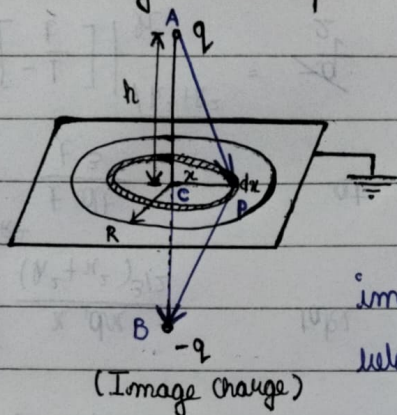 A q
h
x dx
C
P
R
B
-q
(Image charge)
im